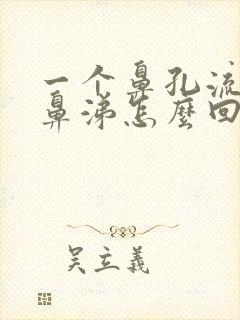 一个鼻孔流
鼻涕怎麼回
吴立義